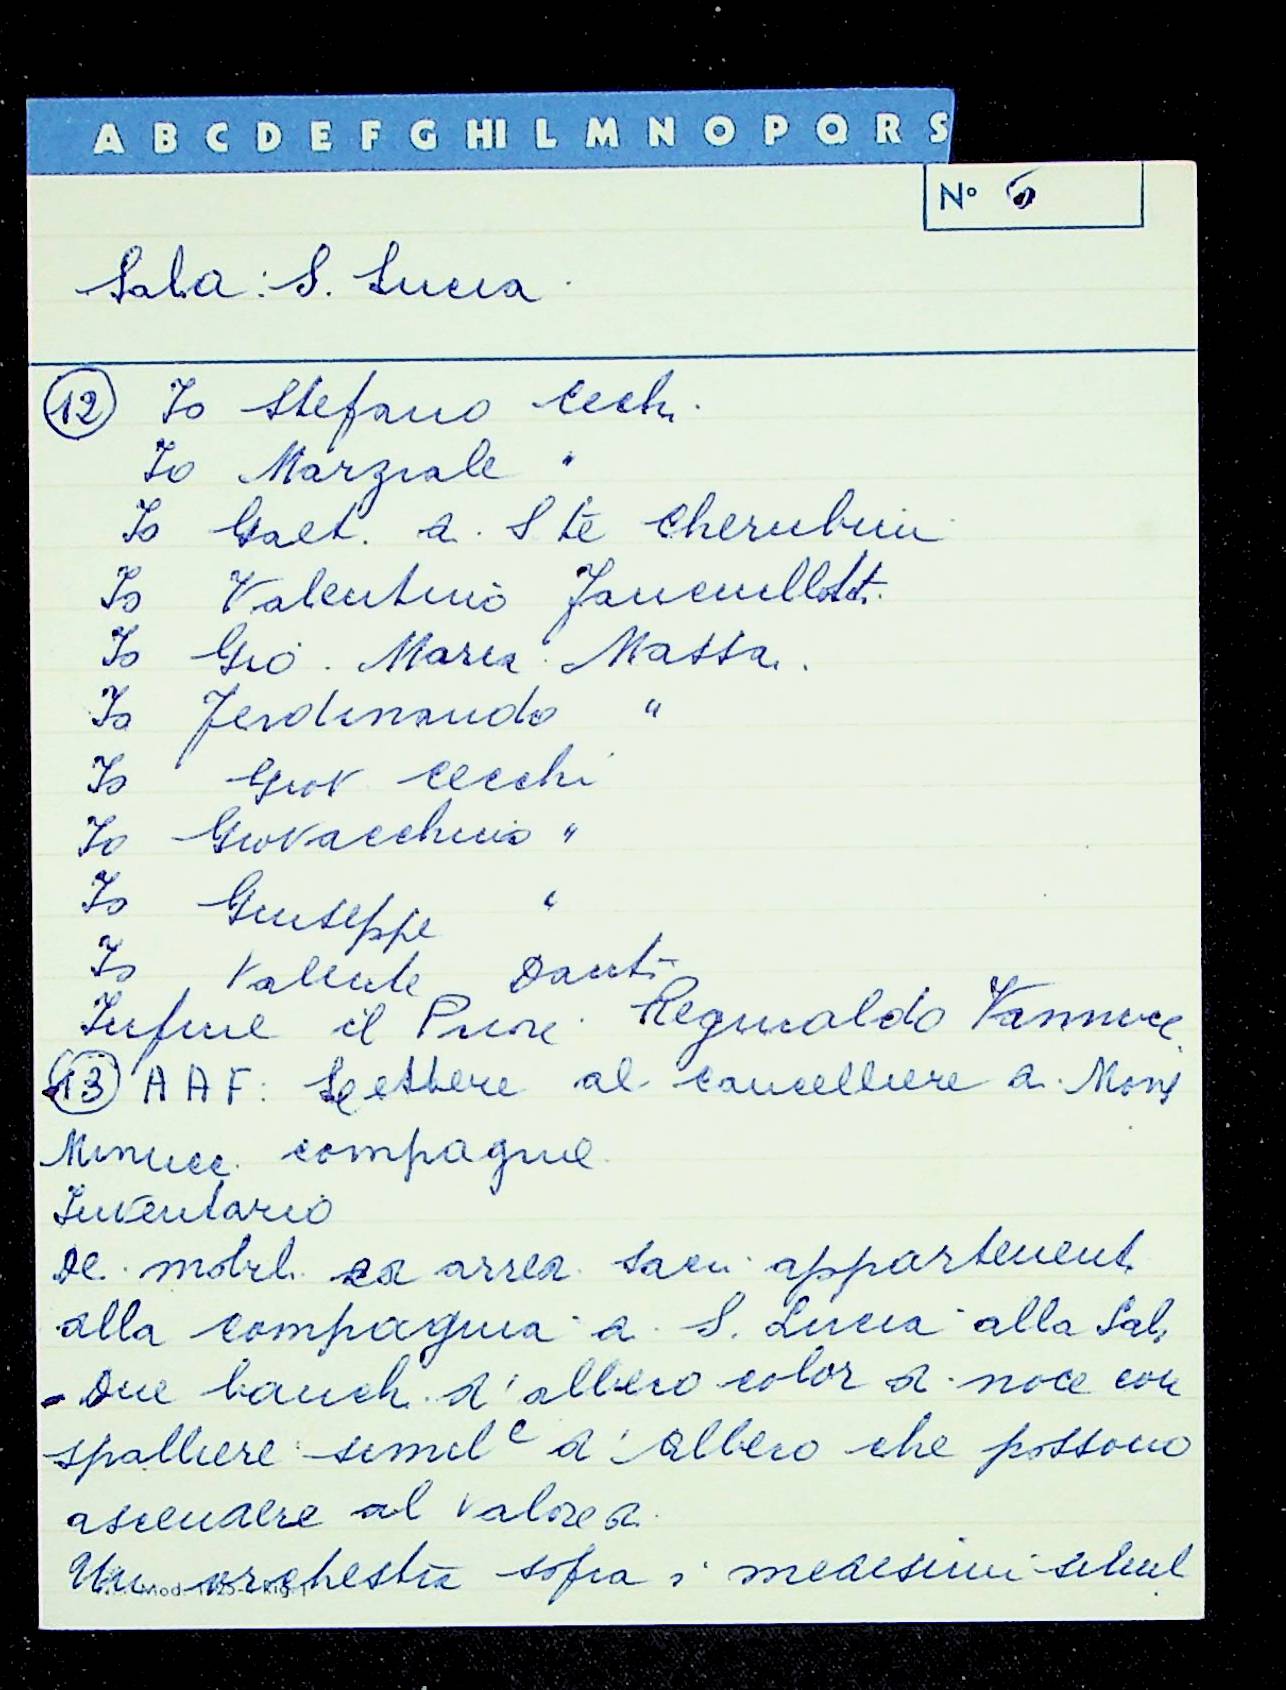 A B C D E F G HI L M N O P Q R S
N° 6
Sala: S. Lucia
12 Io Stefano Cecchi
Io Marziale "
Io Gaet. di Ste Cherubini
Io Valentino
Io Gio. Maria Massai
Io Ferdinando "
Io Giov Cecchi
Io Giovacchino "
Io Giuseppe "
Io Valente Danti
Infine il Priore Reginaldo Vannucci
13 AAF: Lettere al cancelliere di Mons
Minucci compagnie
Inventario
Di mobili ed arredi sacri appartenenti
alla compagnia di S. Lucia alla Sala
- Due banchi d'albero color di noce con
spalliere simile d'albero che possono
ascendere al valore di
Un orchestra sopra i medesimi
Mod.